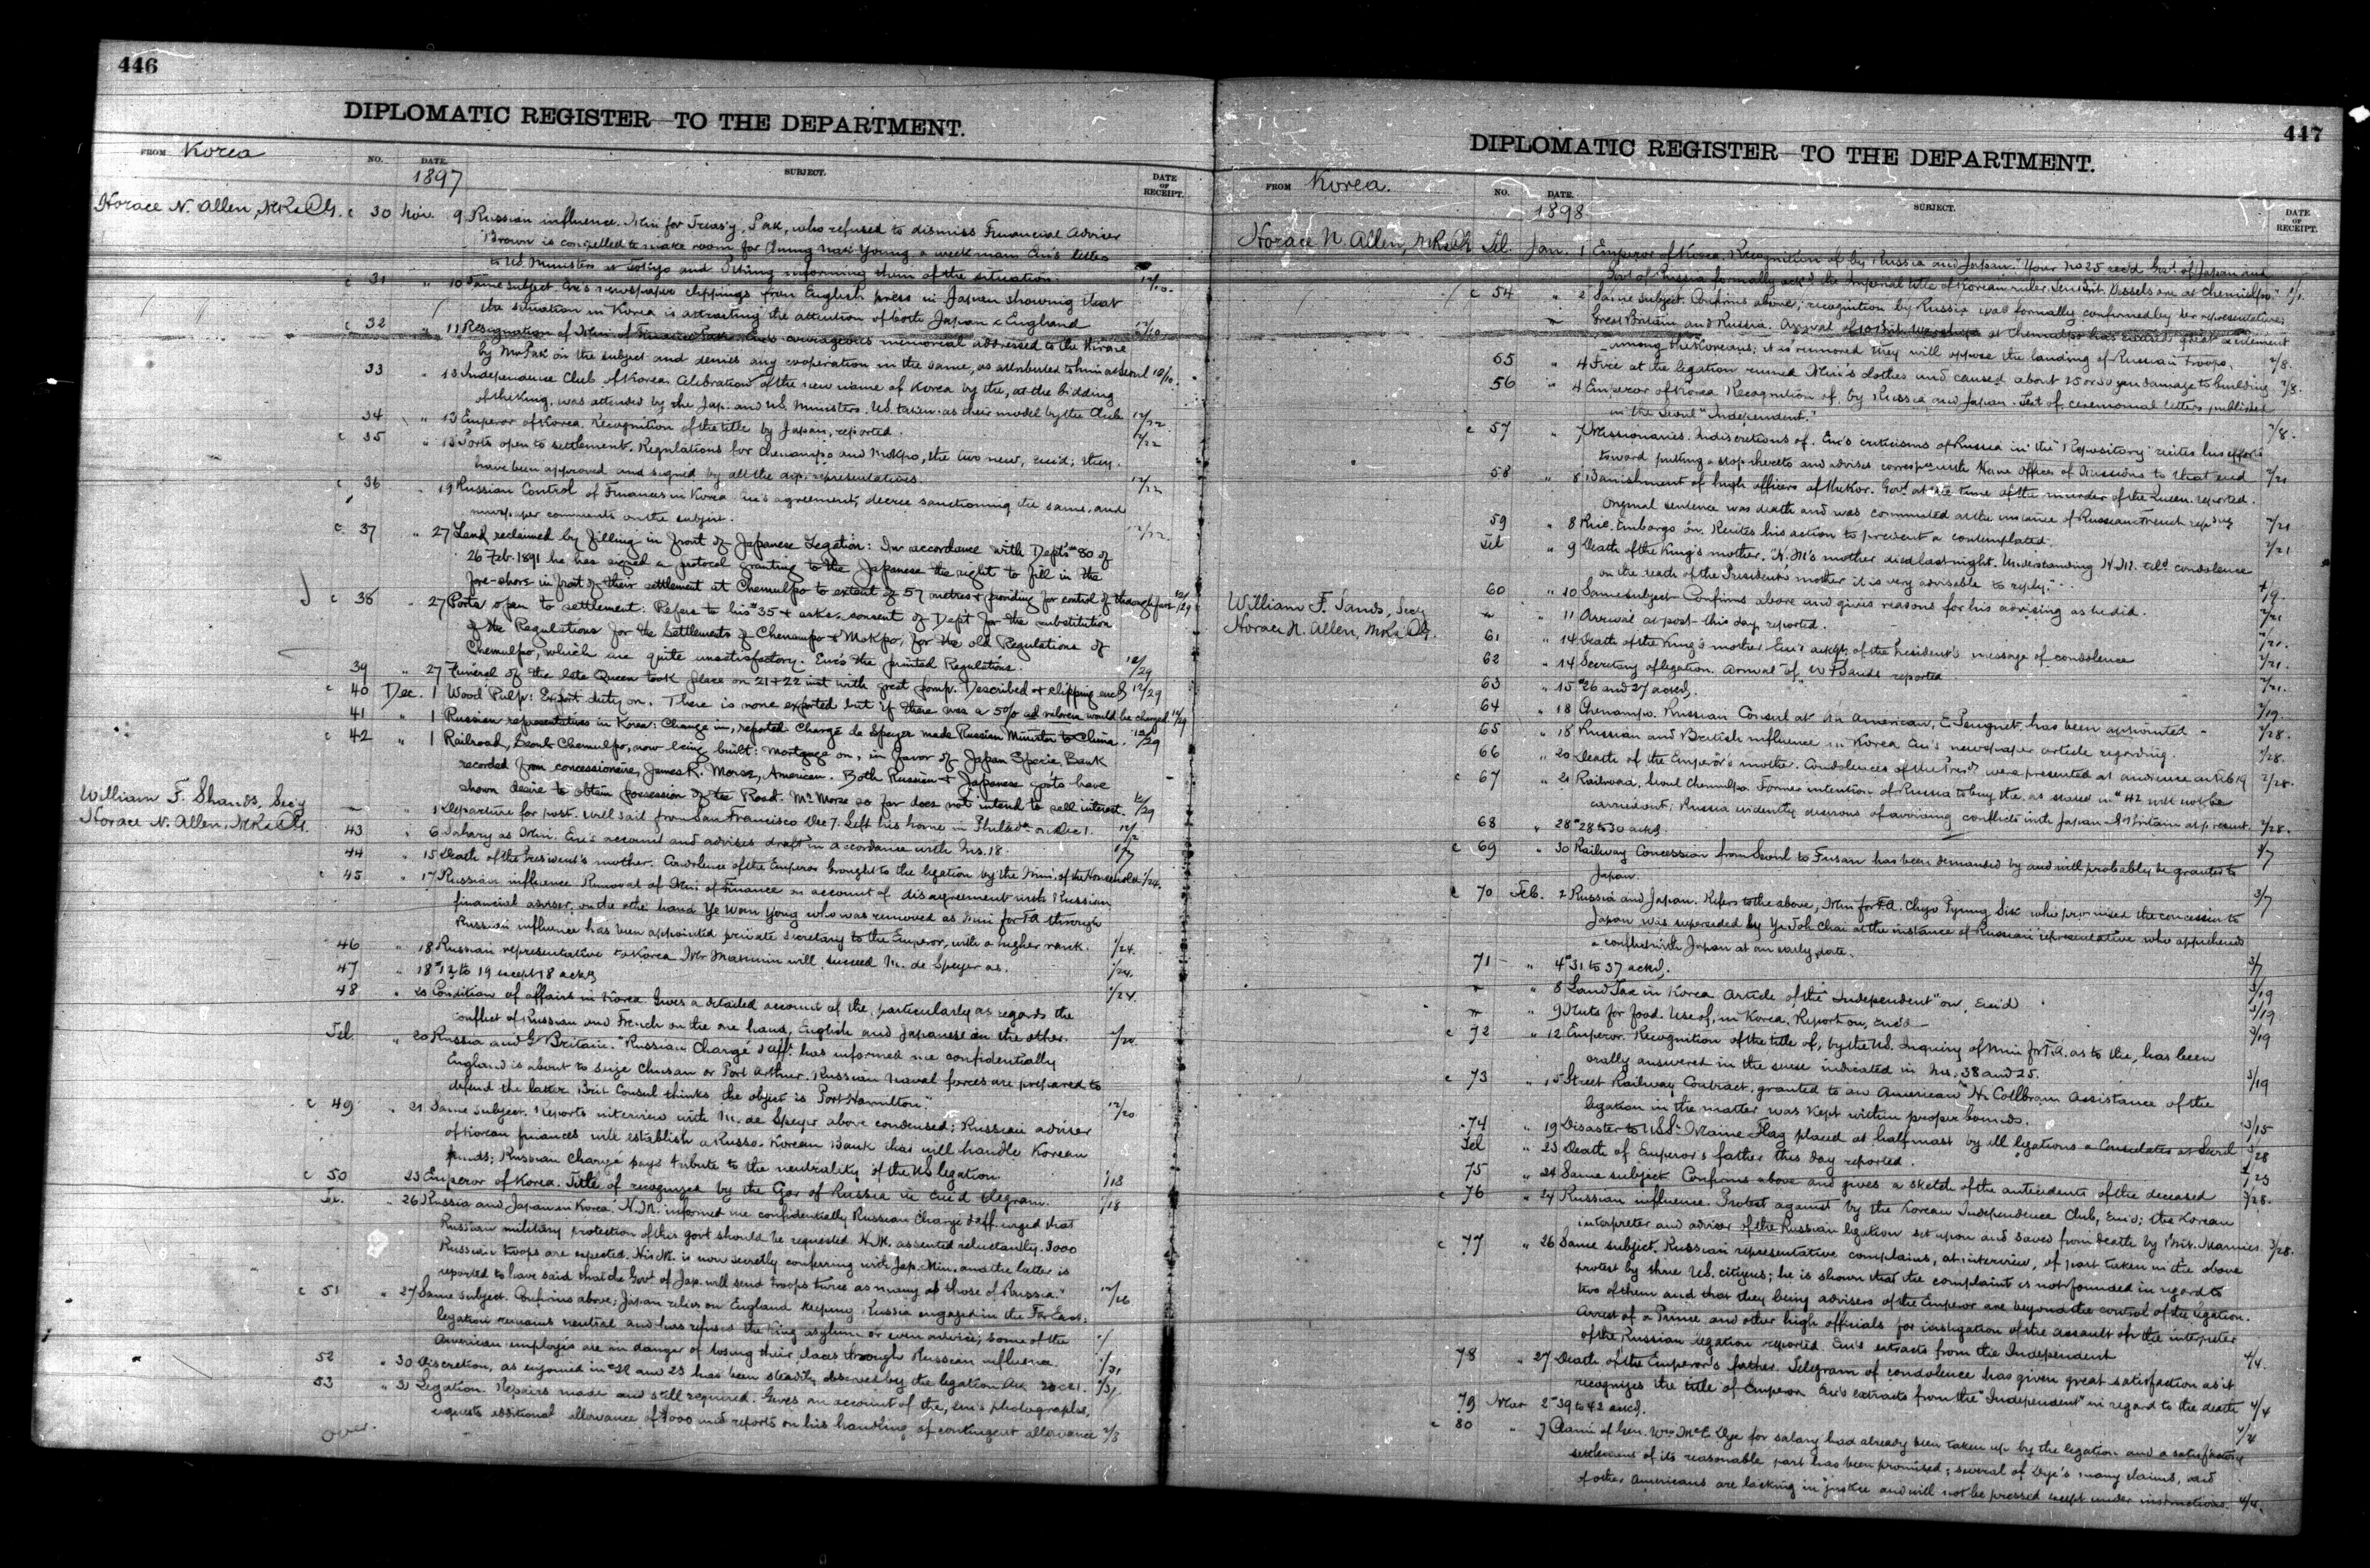 446
DIPLOMATIC REGISTER TO THE DEPARTMENT.
FROM Korea
NO. DATE. SUBJECT. DATE OF RECEIPT.
1897
Horace N. Allen, MR&CG. c 30 Nov. 9 Russian influence. Min for Treas'y, Pak, who refused to dismiss Financial Adviser
Brown is compelled to make room for Chung Nak Young a weak man Enc's letters
to US. Ministers at Tokyo and Peking informing them of the situation.
c 31 " 10 Same subject. Enc's newspaper clippings from English press in Japan showing that
the situation in Korea is attracting the attention of both Japan & England
c 32 " 11 Resignation of Min. of Finance Pak. Enc's courageous memorial addressed to the throne
by Mr Pak on the subject and denies any cooperation in the same, as attributed to him at Seoul
33 " 13 Independence Club of Korea. Celebration of the new name of Korea by the, at the bidding
of the King, was attended by the Jap. and US. Ministers. US. taken as their model by the Club. 12/22.
34 " 13 Emperor of Korea. Recognition of the title by Japan, reported. 12/22
c 35 " 13 Ports open to settlement. Regulations for Chenampo and Mokpo, the two new, encd; they
have been approved and signed by all the dip. representatives. 12/22
c 36 " 19 Russian Control of Finances in Korea. Enc's agreement, decree sanctioning the same, and
newspaper comments on the subject. 12/22.
c 37 " 27 Land reclaimed by filling in front of Japanese Legation: In accordance with Dept's #80 of
26 Feb. 1891 he has signed a protocol granting to the Japanese the right to fill in the
fore-shore in front of their settlement at Chemulpo to extent of 57 metres & providing for control of thoroughfare 12/29
c 38 " 27 Ports open to settlement: Refers to his #35 & asks consent of Dep't for the substitution
of the Regulations for the Settlements of Chenampo & Mokpo, for the old Regulations of
Chemulpo, which are quite unsatisfactory. Enc's the printed Regulations. 12/29
39 " 27 Funeral of the late Queen took place on 21 & 22 inst with great pomp. Described & clipping encd 12/29
c 40 Dec. 1 Wood Pulp: Export duty on. There is none exported but if there was a 5% ad valorem would be charged. 12/29
41 " 1 Russian representatives in Korea: Change in, reported. Chargé de Speyer made Russian Minister to China. 12/29
c 42 " 1 Railroad, Seoul Chemulpo, now being built: Mortgage on, in favor of Japan Specie Bank
recorded from concessionaire, James R. Morse, American. Both Russian & Japanese gov'ts have
shown desire to obtain possession of the Road. Mr Morse so far does not intend to sell interest. 12/29
William F. Shands, Sec'y — " 1 Departure for post. Will sail from San Francisco Dec 7. Left his home in Philada on Dec 1. 12/2
Horace N. Allen, MR&CG. 43 " 6 Salary as Min. Enc's account and advises draft in accordance with Ins. 18. 1/7
44 " 15 Death of the President's mother. Condolence of the Emperor brought to the legation by the Min. of the Household. 1/24.
c 45 " 17 Russian influence. Removal of Min of Finance on account of disagreement with Russian
financial adviser, on the other hand Ye Wan Yong who was removed as Min for F.A. through
Russian influence has been appointed private secretary to the Emperor, with a higher rank. 1/24.
46 " 18 Russian representative to Korea Mr Matunin will succeed M. de Speyer as. 1/24.
47 " 18 #12 to 19 except 18 ackd 1/24.
48 " 20 Condition of affairs in Korea. Gives a detailed account of the, particularly as regards the
conflict of Russian and French on the one hand, English and Japanese on the other.
Tel. " 20 Russia and Gt Britain. "Russian Chargé d'aff. has informed me confidentially
England is about to seize Chusan or Port Arthur. Russian Naval forces are prepared to
defend the latter. Brit Consul thinks the object is Port Hamilton." 12/20
c 49 " 21 Same subject. Reports interview with M. de Speyer above condensed; Russian adviser
of Korean finances will establish a Russo-Korean Bank that will handle Korean
funds; Russian Chargé pays tribute to the neutrality of the US legation. 1/18
c 50 23 Emperor of Korea. Title of recognized by the Czar of Russia in encd telegram. 1/18
Tel. " 26 Russia and Japan in Korea. H.M. informed me confidentially Russian Chargé d'aff. urged that
Russian military protection of this govt should be requested. H.M. assented reluctantly. 3000
Russian troops are expected. His M. is now secretly conferring with Jap. Min. and the latter is
reported to have said that the Govt of Jap. will send troops twice as many as those of Russia." 12/26
c 51 " 27 Same subject. Confirms above; Japan relies on England keeping Russia engaged in the Far East.
legation remains neutral and has refused the King asylum or even advice; some of the
American employés are in danger of losing their places through Russian influence. 1/31
52 " 30 Discretion, as enjoined in and 23 has been steadily observed by the legation. 1/31
53 " 31 Legation. Repairs made and still required. Gives an account of the, enc's photographs,
requests additional allowance of $1000 and reports on his handling of contingent allowance 2/3
over.
447
DIPLOMATIC REGISTER TO THE DEPARTMENT.
FROM Korea.
NO. DATE. SUBJECT. DATE OF RECEIPT.
1898
Horace N. Allen, MR&CG Tel. Jan. 1 Emperor of Korea. Recognition of, by Russia and Japan. "Your No 25 rec'd Govt of Japan and
Govt of Russia formally ack'd the Imperial title of Korean ruler. Brit. Vessels are at Chemulpo." 1/1.
c 54 " 2 Same subject. Confirms above; recognition by Russia was formally confirmed by her representative;
Great Britain and Russia. Arrival of 10 Brit. Warships at Chemulpo has excited great excitement
among the Koreans; it is rumored they will oppose the landing of Russian troops. 2/8.
55 " 4 Fire at the legation ruined Min's clothes and caused about 25 or 30 yen damage to building 2/8.
56 " 4 Emperor of Korea. Recognition of, by Russia and Japan. Text of, ceremonial letters published
in the Seoul "Independent." 2/8.
c 57 " 7 Missionaries. Indiscretions of. Enc's criticisms of Russia in the "Repository" recites his efforts
toward putting a stop thereto and advises correspce with Home Offices of Missions to that end 2/21
58 " 8 Banishment of high officers of the Kor. Govt at the time of the murder of the Queen reported.
Original sentence was death and was commuted at the instance of Russian French rep'tvs 2/21
59 " 8 Rice. Embargo on. Recites his action to prevent a contemplated. 2/21
Tel " 9 Death of the King's mother. "H.M's mother died last night. Understanding H.M. tel'd condolence
on the death of the President's mother it is very advisable to reply."
60 " 10 Same subject. Confirms above and gives reasons for his advising as he did. 2/21
William F. Sands, Sec'y — " 11 Arrival at post this day reported. 2/21.
Horace N. Allen, MR&CG. 61 " 14 Death of the King's mother. Enc's ackgt of the President's message of condolence 2/21.
62 " 14 Secretary of legation. Arrival of W F Sands reported 2/21.
63 " 15 #26 and 27 ackd.
64 " 18 Chenampo. Russian Consul at An American, E Peugnet has been appointed 2/28.
65 " 18 Russian and British influence in Korea Enc's newspaper article regarding. 2/28.
66 " 20 Death of the Emperor's mother. Condolences of the Presdt were presented at audience on 2/28.
c 67 " 21 Railroad, Seoul Chemulpo. Former intention of Russia to buy the, as stated in #42 will not be
carried out; Russia evidently desirous of avoiding conflicts with Japan & Gt Britain at present. 2/28.
68 " 28 #28 to 30 ackd. 3/7
c 69 " 30 Railway Concession from Seoul to Fusan has been demanded by and will probably be granted to
Japan. 3/7
c 70 Feb. 2 Russia and Japan. Refers to the above, Min for F.A. Chyo Pyung Sik who promised the concession to
Japan was superseded by Ye Toh Chai at the instance of Russian representative who apprehends
a conflict with Japan at an early date. 3/7
71 " 4 #31 to 37 ackd.
" 8 Land Tax in Korea Article of the "Independent" on, enc'd 3/19
" 9 Nuts for food. Use of, in Korea. Report on, enc'd 3/19
c 72 " 12 Emperor. Recognition of the title of, by the US. Inquiry of Min for F.A. as to the, has been
orally answered in the sense indicated in Ins. 38 and 25. 3/19
c 73 " 15 Street Railway Contract, granted to an American Mr Collbran. Assistance of the
legation in the matter was kept within proper bounds.
74 " 19 Disaster to USS. Maine. Flag placed at half mast by all legations & Consulates at Seoul 3/28
Tel " 23 Death of Emperor's father this day reported.
75 " 24 Same subject Confirms above and gives a sketch of the antecedents of the deceased 3/28.
c 76 " 24 Russian influence. Protest against by the Korean Independence Club, Enc'd; the Korean
interpreter and adviser of the Russian legation set upon and saved from death by Brit. Marines. 3/28.
c 77 " 26 Same subject. Russian representative complains, at interview, of part taken in the above
protest by three US. citizens; he is shown that the complaint is not founded in regard to
two of them and that they being advisers of the Emperor are beyond the control of the legation.
Arrest of a Prince and other high officials for instigation of the assault of the interpreter
of the Russian legation reported. Enc's extracts from the Independent 4/4.
78 " 27 Death of the Emperor's father. Telegram of condolence has given great satisfaction as it
recognizes the title of Emperor Enc's extracts from the "Independent" in regard to the death 4/4
79 Mar 2 #39 to 42 ackd. 4/4
c 80 " 7 Claim of Gen. Wm McE. Dye for salary had already been taken up by the legation and a satisfactory
settlement of its reasonable part has been promised; several of Dye's many claims, and
of other Americans are lacking in justice and will not be pressed except under instructions. 4/4.